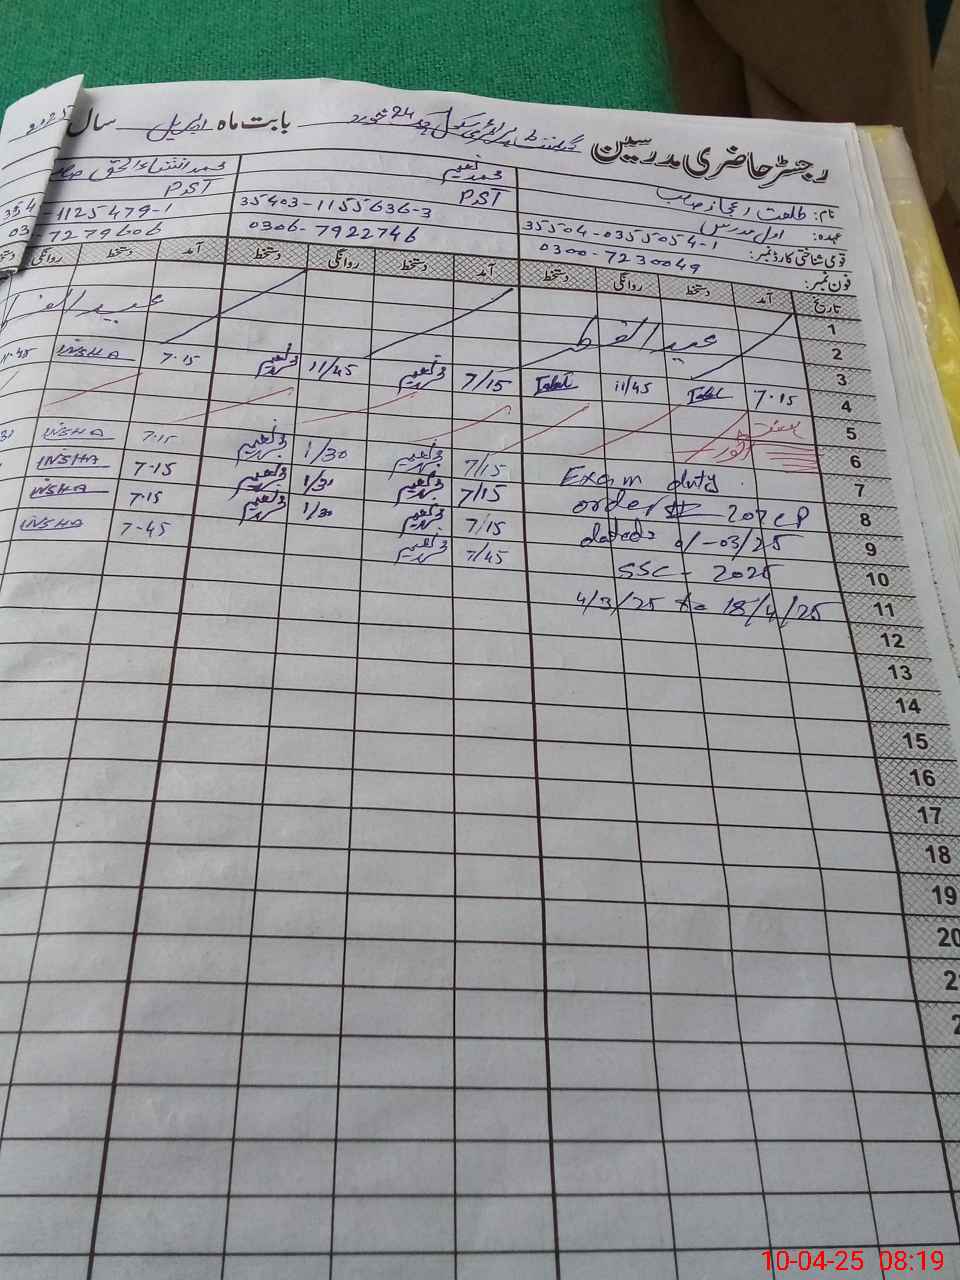 رجسٹر حاضری مدرسین گورنمنٹ پرائمری سکول بابت ماہ اپریل سال 2025
نام: طلعت اعجاز صاحب
محمد نعیم
محمد انشاء الحق
عہدہ: اول مدرس
PST
PST
قومی شناختی کارڈ نمبر: 35504-0355054-1
35403-1155636-3
354 -1125479-1
فون نمبر: 0300-7230049
0306-7922746
03 -7279606
تاریخ آمد دستخط روانگی دستخط آمد دستخط روانگی دستخط آمد دستخط روانگی دستخط
1
2 عید الفطر
عید الفطر
3
4 7.15 11/45 7/15 نعیم 11/45 نعیم 7.15 INSHA 11.45
5
6 اتوار
7 Exam duty 7/15 نعیم 1/30 نعیم 7.15 INSHA
8 order # 207 CP 7/15 نعیم 1/31 نعیم 7.15 INSHA
9 dated: 01-03/25 7/15 نعیم 1/30 نعیم 7.15 INSHA
10 SSC - 2025 7/45 نعیم 7-45 INSHA
11 4/3/25 to 18/4/25
12
13
14
15
16
17
18
19
20
10-04-25 08:19